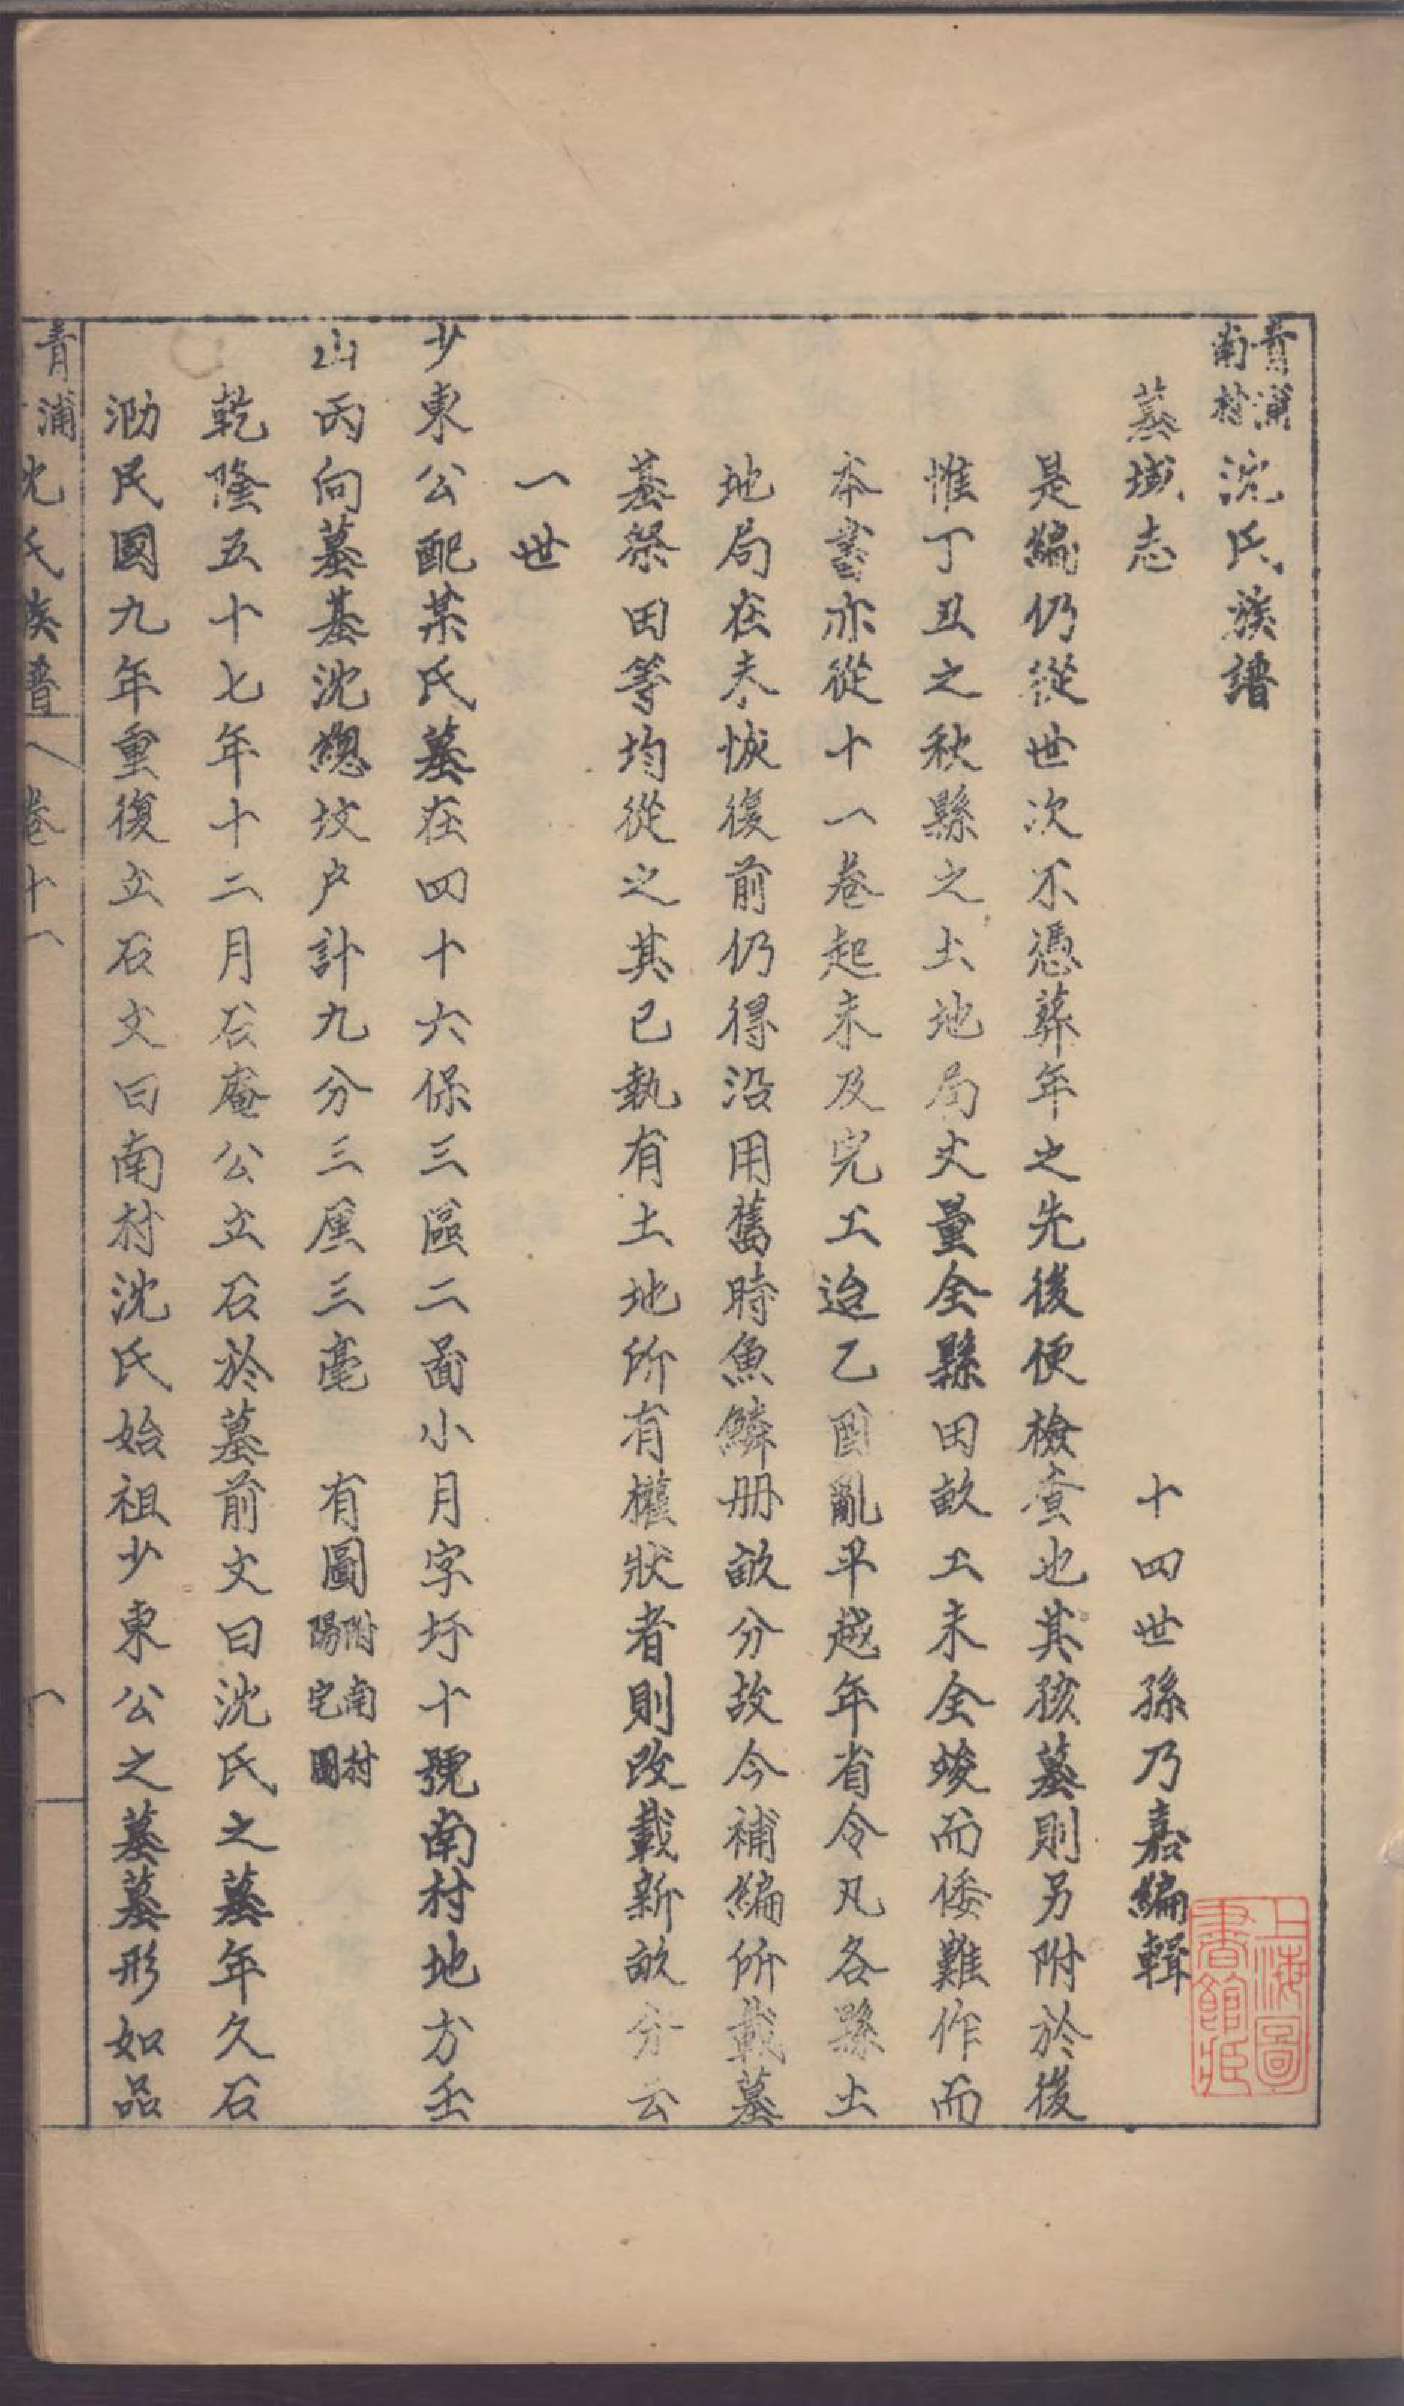 青浦南村沈氏族譜
墓域志
十四世孫乃嘉編輯
是編仍從世次不憑葬年之先後便檢查也其孩墓則另附於後
惟丁丑之秋縣之土地局丈量全縣田畝工未全竣而倭難作而
本書亦從十一卷起未及完工迨乙酉亂平越年省令凡各縣土
地局在未恢復前仍得沿用舊時魚鱗册畝分故今補編所載墓
基祭田等均從之其已執有土地所有權狀者則改載新畝分云
一世
少東公配某氏墓在四十六保三區二啚小月字圩十號南村地方壬
山丙向墓基沈總坟户計九分三厘三毫 有圖附南村陽宅圖
乾隆五十七年十二月石庵公立石於墓前文曰沈氏之墓年久石
泐民國九年重復立石文曰南村沈氏始祖少東公之墓墓形如品
青浦沈氏族譜 卷十一 一
上海圖書館藏